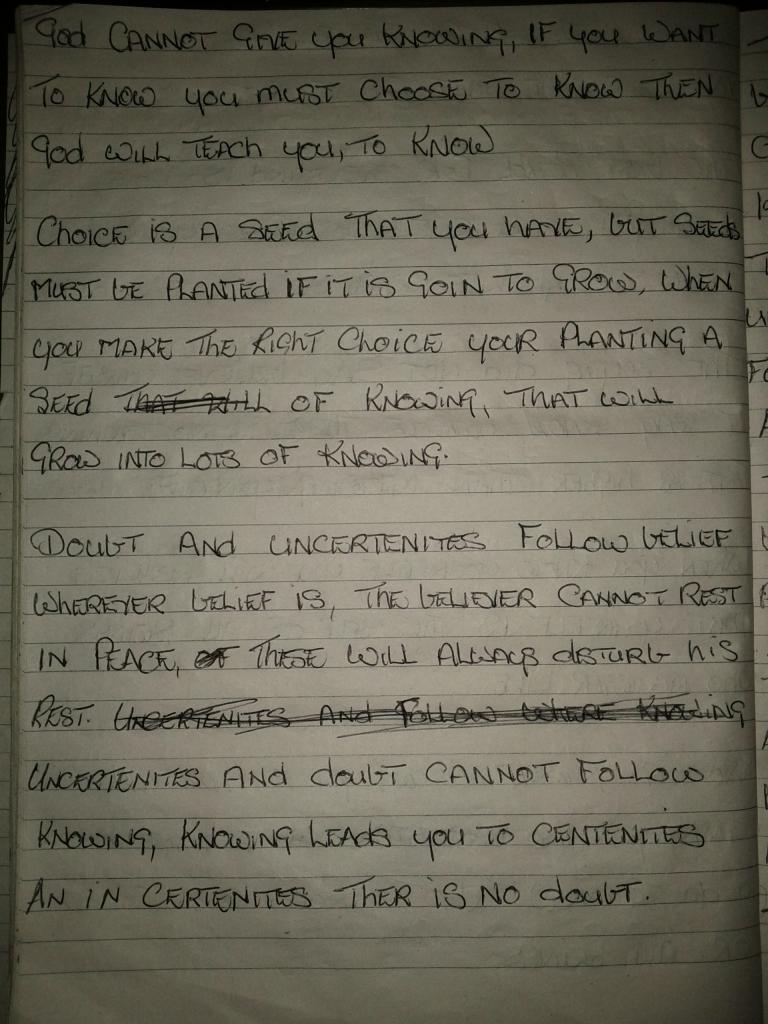 God CANNOT GIVE you KNOWING, IF you WANT
TO KNOW you MUST CHOOSE TO KNOW THEN
God WILL TEACH you, TO KNOW
CHOICE IS A SEED THAT you HAVE, BUT SEEDS
MUST BE PLANTED IF IT IS GOIN TO GROW, WHEN
you MAKE THE RIGHT CHOICE YOUR PLANTING A
SEED THAT WILL OF KNOWING, THAT WILL
GROW INTO LOTS OF KNOWING.
DOUBT AND UNCERTENITES FOLLOW BELIEF
WHEREVER BELIEF IS, THE BELIEVER CANNOT REST
IN PEACE, OF THESE WILL ALWAYS DISTURB HIS
REST. UNCERTENITES AND FOLLOW WHERE KNOWING
UNCERTENITES AND doubT CANNOT FOLLOW
KNOWING, KNOWING LEADS you TO CENTENITES
AN IN CERTENITES THER IS NO doubT.